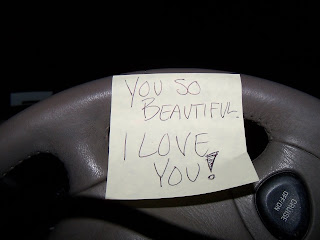 YOU SO
BEAUTIFUL.
I LOVE
YOU!
CRUISE
OFF/ON